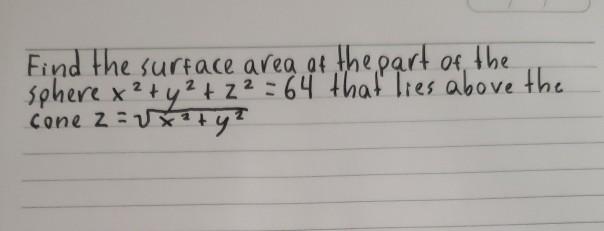 Find the surface area of the part of the
sphere x² + y² + z² = 64 that lies above the
cone z = √x² + y²